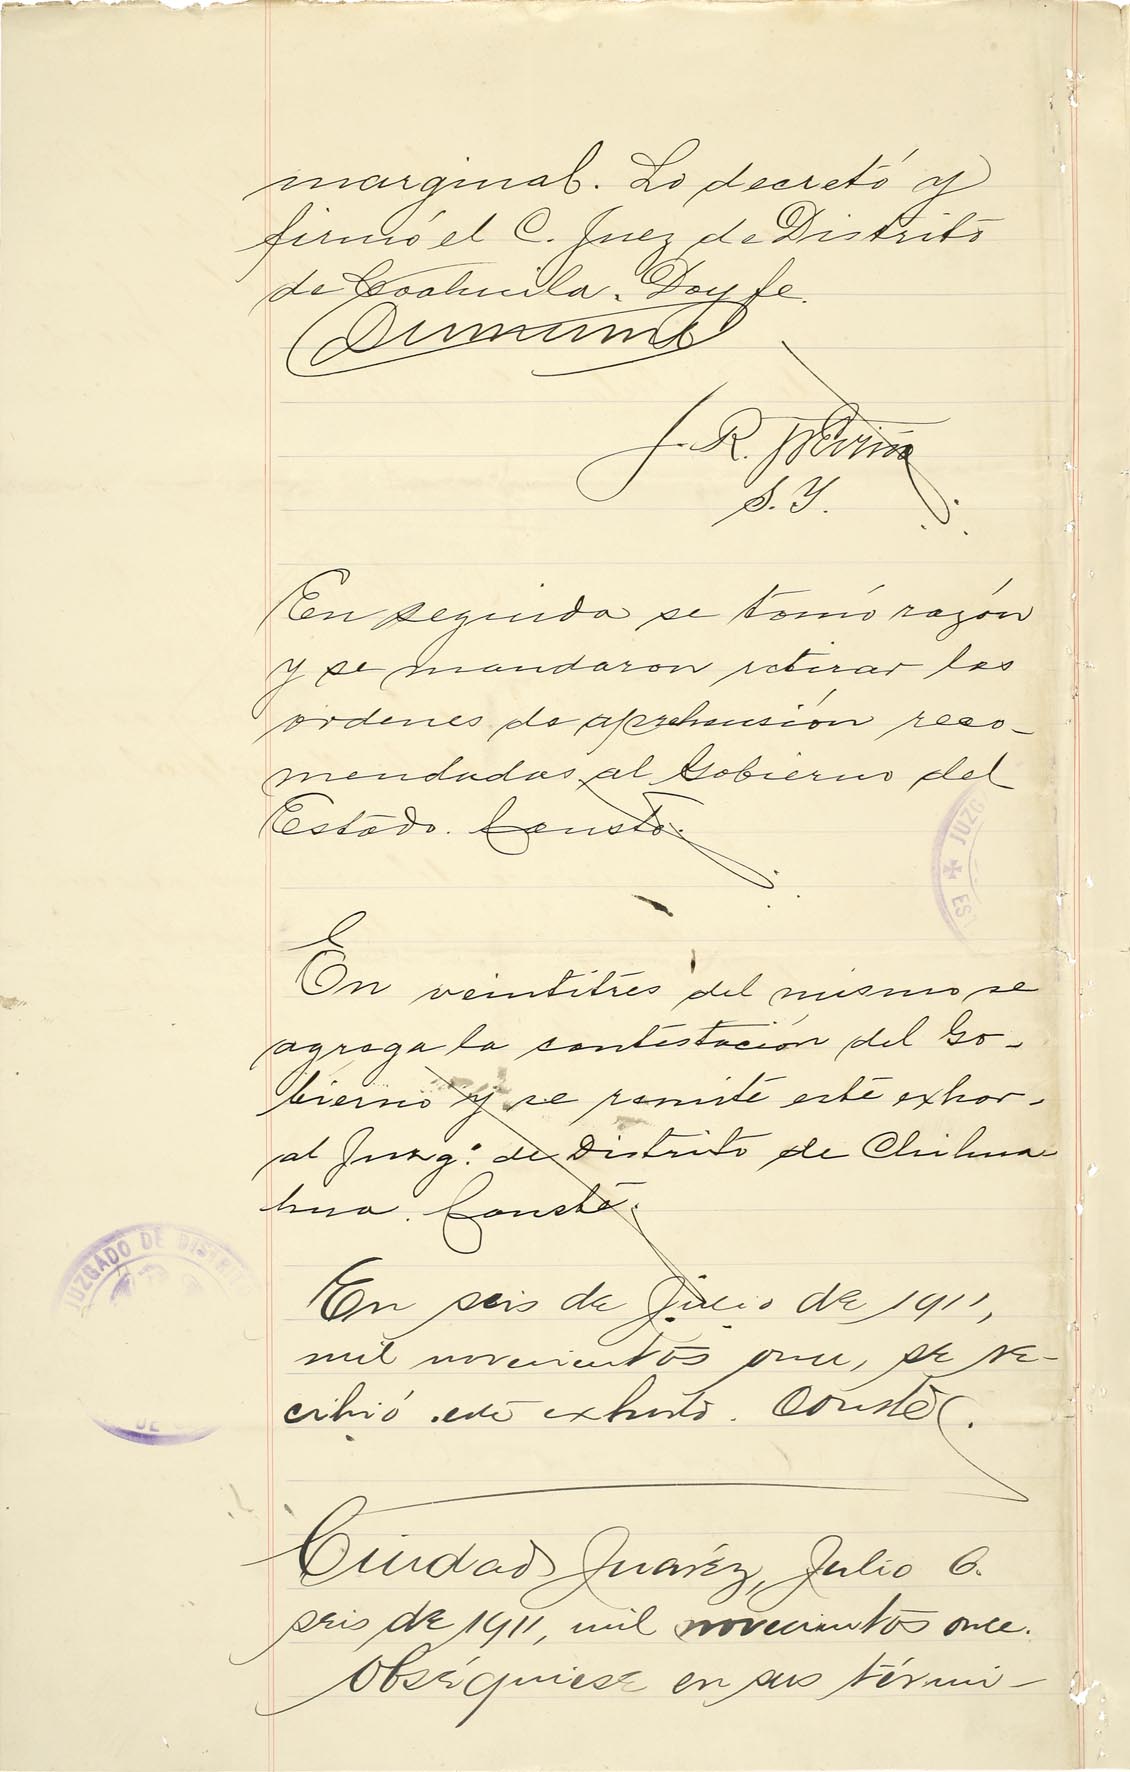 marginal. Lo decretó y
firmó el C. Juez de Distrito
de Coahuila. Doy fe.
J. R. Treviño
S. Y.
En seguida se tomó razón
y se mandaron retirar las
ordenes de aprehensión reco-
mendadas al Gobierno del
Estado. Conste.
JUZG
EST
En veintitres del mismo se
agrega la contestación del Go-
bierno y se remite este exhor.
al Juzg.º de Distrito de Chihua
hua. Conste.
JUZGADO DE DISTRITO
DE
En seis de Julio de 1911,
mil novecientos once, se re-
cibió este exhorto. Conste.
Ciudad Juaréz, Julio 6.
seis de 1911, mil novecientos once.
Obséquiese en sus térmi-